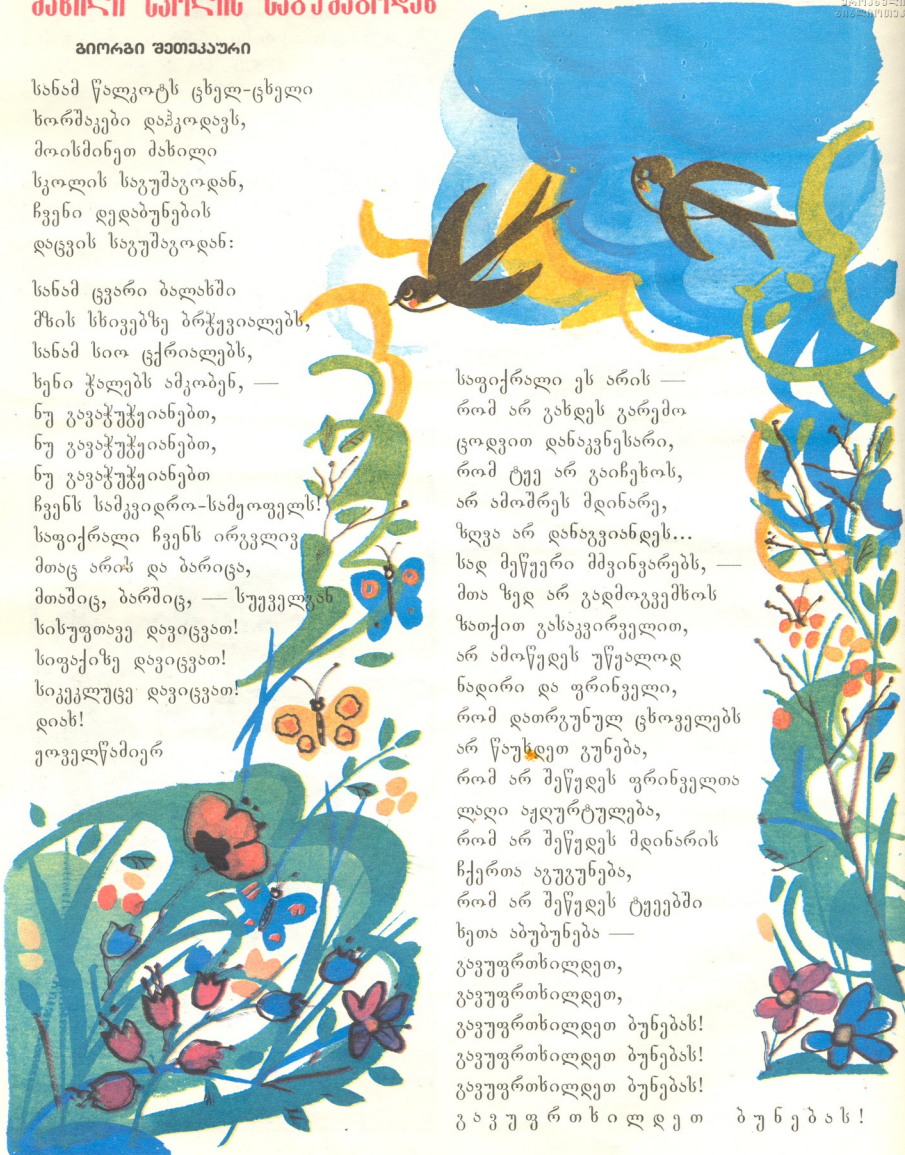 მახილი სკოლის საგუშაგოდან
გიორგი შეთეკაური
სანამ წალკოტს ცხელ-ცხელი
ხორშაკები დაჰკოდავს,
მოისმინეთ მახილი
სკოლის საგუშაგოდან,
ჩვენი დედაბუნების
დაცვის საგუშაგოდან:
სანამ ცვარი ბალახში
მზის სხივებზე ბრჭყვიალებს,
სანამ სიო ცქრიალებს,
ხენი ჭალებს ამკობენ, —
ნუ გავაჭუჭყიანებთ,
ნუ გავაჭუჭყიანებთ,
ნუ გავაჭუჭყიანებთ
ჩვენს სამკვიდრო-სამყოფელს!
საფიქრალი ჩვენს ირგვლივ
მთაც არის და ბარიცა,
მთაშიც, ბარშიც, — სუყველგან
სისუფთავე დავიცვათ!
სიფაქიზე დავიცვათ!
სიკეკლუცე დავიცვათ!
დიახ!
ყოველწამიერ
საფიქრალი ეს არის —
რომ არ გახდეს გარემო
ცოდვით დანაკვნესარი,
რომ ტყე არ გაიჩეხოს,
არ ამოშრეს მდინარე,
ზღვა არ დანაგვიანდეს...
სად მეწყერი მძვინვარებს, —
მთა ზედ არ გადმოგვემხოს
ზათქით გასაკვირველით,
არ ამოწყდეს უწყალოდ
ნადირი და ფრინველი,
რომ დათრგუნულ ცხოველებს
არ წაუხდეთ გუნება,
რომ არ შეწყდეს ფრინველთა
ლაღი აჟღურტულება,
რომ არ შეწყდეს მდინარის
ჩქერთა აგუგუნება,
რომ არ შეწყდეს ტყეებში
ხეთა აბუბუნება —
გავუფრთხილდეთ,
გავუფრთხილდეთ,
გავუფრთხილდეთ ბუნებას!
გავუფრთხილდეთ ბუნებას!
გავუფრთხილდეთ ბუნებას!
გავუფრთხილდეთ ბუნებას!